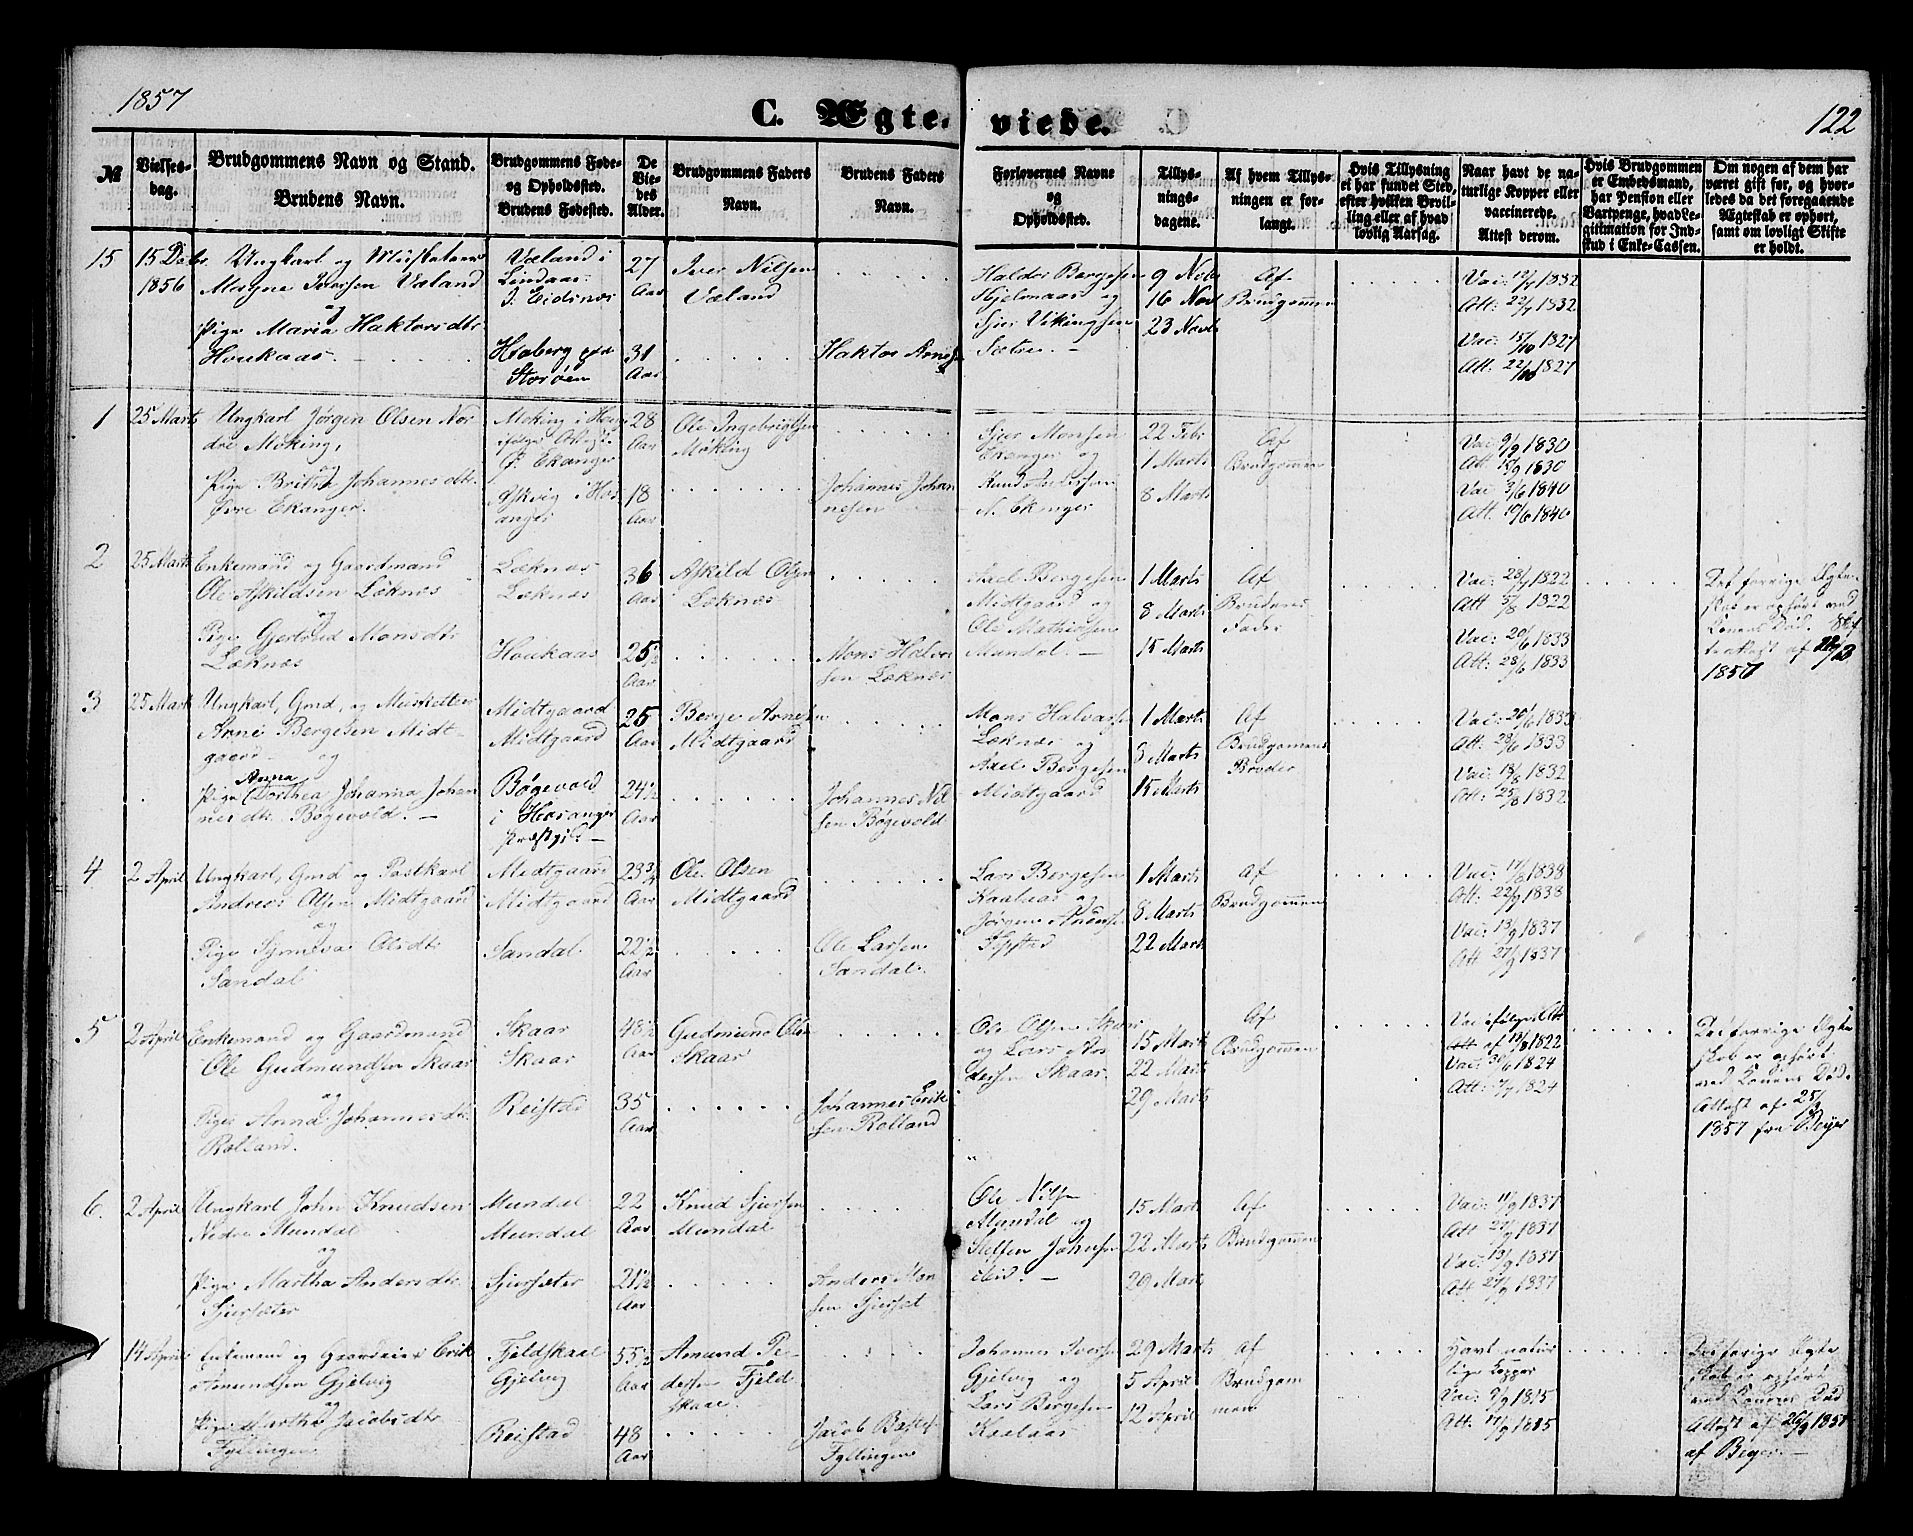 1857
122
C. Ægte-viede.
№
Vielses-
dag.
Brudgommens Navn og Stand.
Brudens Navn.
Brudgommens Føde-
og Opholdssted.
Brudens Fødested.
De
Vie-
des
Alder.
Brudgommens Faders
Navn.
Brudens Faders
Navn.
Forlovernes Navne
og
Opholdssted.
Tillys-
nings-
dagene.
Af hvem Tillys-
ningen er for-
langt.
Hvis Tillysning
ei har fundet Sted,
efter hvilken Bevil-
ling eller af hvad
lovlig Aarsag.
Naar havt de na-
turlige Kopper eller
vaccinerede.
Attest derom.
Hvis Brudgommen
er Embedsmand,
har Pension eller
Vartpenge, hvad Le-
gitimation for Ind-
skud i Enke-Cassen.
Om nogen af dem har
været gift før, og hvor-
ledes da det foregaaende
Ægteskab er ophørt,
samt om lovligt Skifte
er holdt.
15
15 Decbr.
1856
Ungkarl og Musketeer
Mogne Iversen Væland
og
Pige Maria Haktorsdtr
Houkaas
Væland i
Lindaas
I. Eidsnes
Hoberg
Storøen
27
Aar
31
Aar
Iver Nilsen
Væland
Haktor Arnesen
Haldor Bergesen
Hjelmaas og
Sjur Vikingsen
Sætre
9 Novb
16 Novb
23 Novb
Af
Brudgommen
Vac: 12/7 1832
Att: 22/7 1832
Vac: 15/10 1827
Att. 22/10 1827
1
25 Marts
Ungkarl Jørgen Olsen Nor-
dre Møking,
og
Pige Britha Johannesdtr.
Øvre Ekanger.
Møking i Ho
ifølge Attest
Ø. Ekanger
i Hos
anger
28
Aar
18
Aar
Ole Ingebrigtsen
Møking
Johannes Johan
nesen
Sjur Monsen
Ekanger og
Knud Andersen
N. Ekanger
22 Febr
1 Marts
8 Marts
Af
Brudgommen
Vac: 9/9 1830
Att 18/9 1830
Vac 3/6 1840
Att. 10/6 1840
2
25 Marts
Enkemand og Gaardmand
Ole Askildsen Læknes
og
Pige Gjertrud Monsdtr
Læknes
Læknes
Læknes
Houkaas
36
Aar
25 1/2
Aar
Askild Olsen
Læknes
Mons Halvor
sen Læknes
Axel Bergesen
Midtgaard og
Ole Mathiassen
Mundal.
1 Marts
8 Marts
15 Marts
Af
Brudens
Fader
Vac: 28/7 1822
Att 5/8 1822
Vac: 20/6 1833
Att: 28/6 1833
Det forrige Ægte-
skab er ophørt ved
Konens Død.
af
1857
3
25 Marts
Ungkarl, Gmd, og Musketeer
Arne Bergesen Midt-
gaard og
Pige Anna Dorthea Johanna Johan
nesdtr. Bøgevold.
Midtgaard
Midtgaard
Bøgevold
i Hosanger
Præstgjd.
25
Aar
24 1/2
Aar
Berge Arnesen
Midtgaard
Johannes Nil
sen Bøgevold
Mons Halvorsen
Læknes og
Axel Bergesen
Midtgaard
1 Marts
8 Marts
15 Marts
Af
Brudgommens
Broder
Vac: 20/6 1833
Att: 28/6 1833
Vac: 18/8 1832
Att: 25/8 1832
4
2 April
Ungkarl, Gmd og Postkarl
Andreas Olsen Midtgaard
og
Pige Synneva Olsdtr
Sandal
Midtgaard
Midtgaard
Sandal
23 3/4
Aar
22 1/2
Aar
Ole Olsen
Midtgaard
Ole Larsen
Sandal.
Lars Bergesen
Kaalaas og
Jørgen
1 Marts
8 Marts
22 Marts
Af
Brudgommen
Vac: 17/8 1838
Att: 22/9 1838
Vac: 13/9 1837
Att 27/9 1837
5
2 April
Enkemand og Gaardmand
Ole Gudmundsen Skaar
og
Pige Anna Johannesdtr.
Rolland.
Skaar
Skaar
Reistad
48 1/2
Aar
35
Aar
Gudmund Olsen
Skaar
Johannes Erik
sen Rolland
Ole Olsen Skaar
og Lars An
dersen Skaar
15 Marts
22 Marts
29 Marts
Af
Brudgommen
Vac ifølge Att
af 18/8 1822
Vac: 30/6 1824
Att: 7/7 1824
Det forrige Ægte
skab er ophørt
ved Konens Død.
Attest af 25/3
1857 fra Beyer
6.
2 April
Ungkarl John Knudsen
Nedre Mundal
og
Pige Martha Andersdtr.
Sjursæter
Mundal
Mundal
Sjursæter
22
Aar
21 1/2
Aar
Knud Sjursen
Mundal
Anders Mon
sen Sjursæt
Ole Nilsen
Mundal og
Steffen Johnsen
ibid.
15 Marts
22 Marts
29 Marts
Af
Brudgommen
Vac: 11/9 1837
Att 27/9 1837
Vac: 13/9 1837
Att 27/9 1837
14 April
Enkemand og Gaardeier Erik
Amundsen Gjelvig
og
Pige Martha Jacobsdtr
Fyllingen
Fjeldskaal
Gjelvig
Reistad
55 1/2
Aar
48
Aar
Amund Pe-
dersen Fjeld
skaal
Jacob
Fyllingen
Johannes Iversen
Gjelvig og
Lars Bergesen
Kaalaas
29 Marts
5 April
12 April
af
Brudgom
men
Havt natur
lige Kopper
Vac: 9/9 1815
Att: 17/9 1815
Det forrige Ægte
skab er ophørt
ved Konens Død
Attest af 26/3 1857
af Beyer